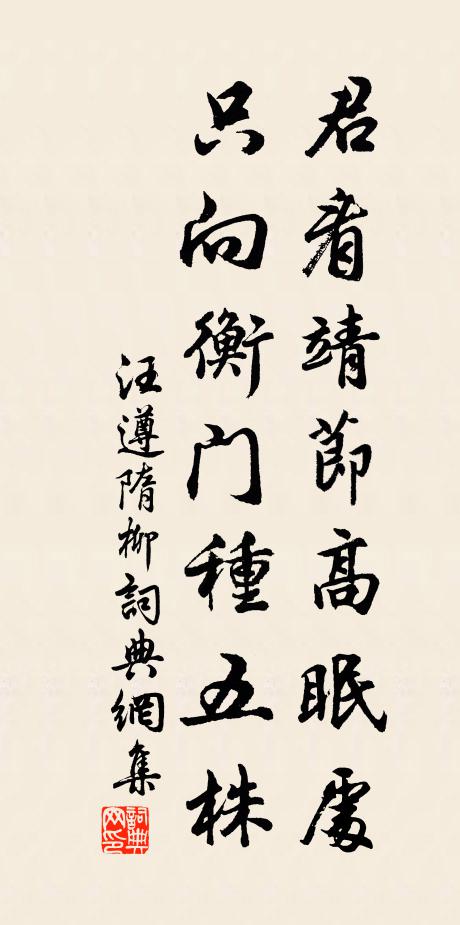 君看靖節高眠處
只向衡門種五株
汪遵隋柳詞典網集
詞典网印